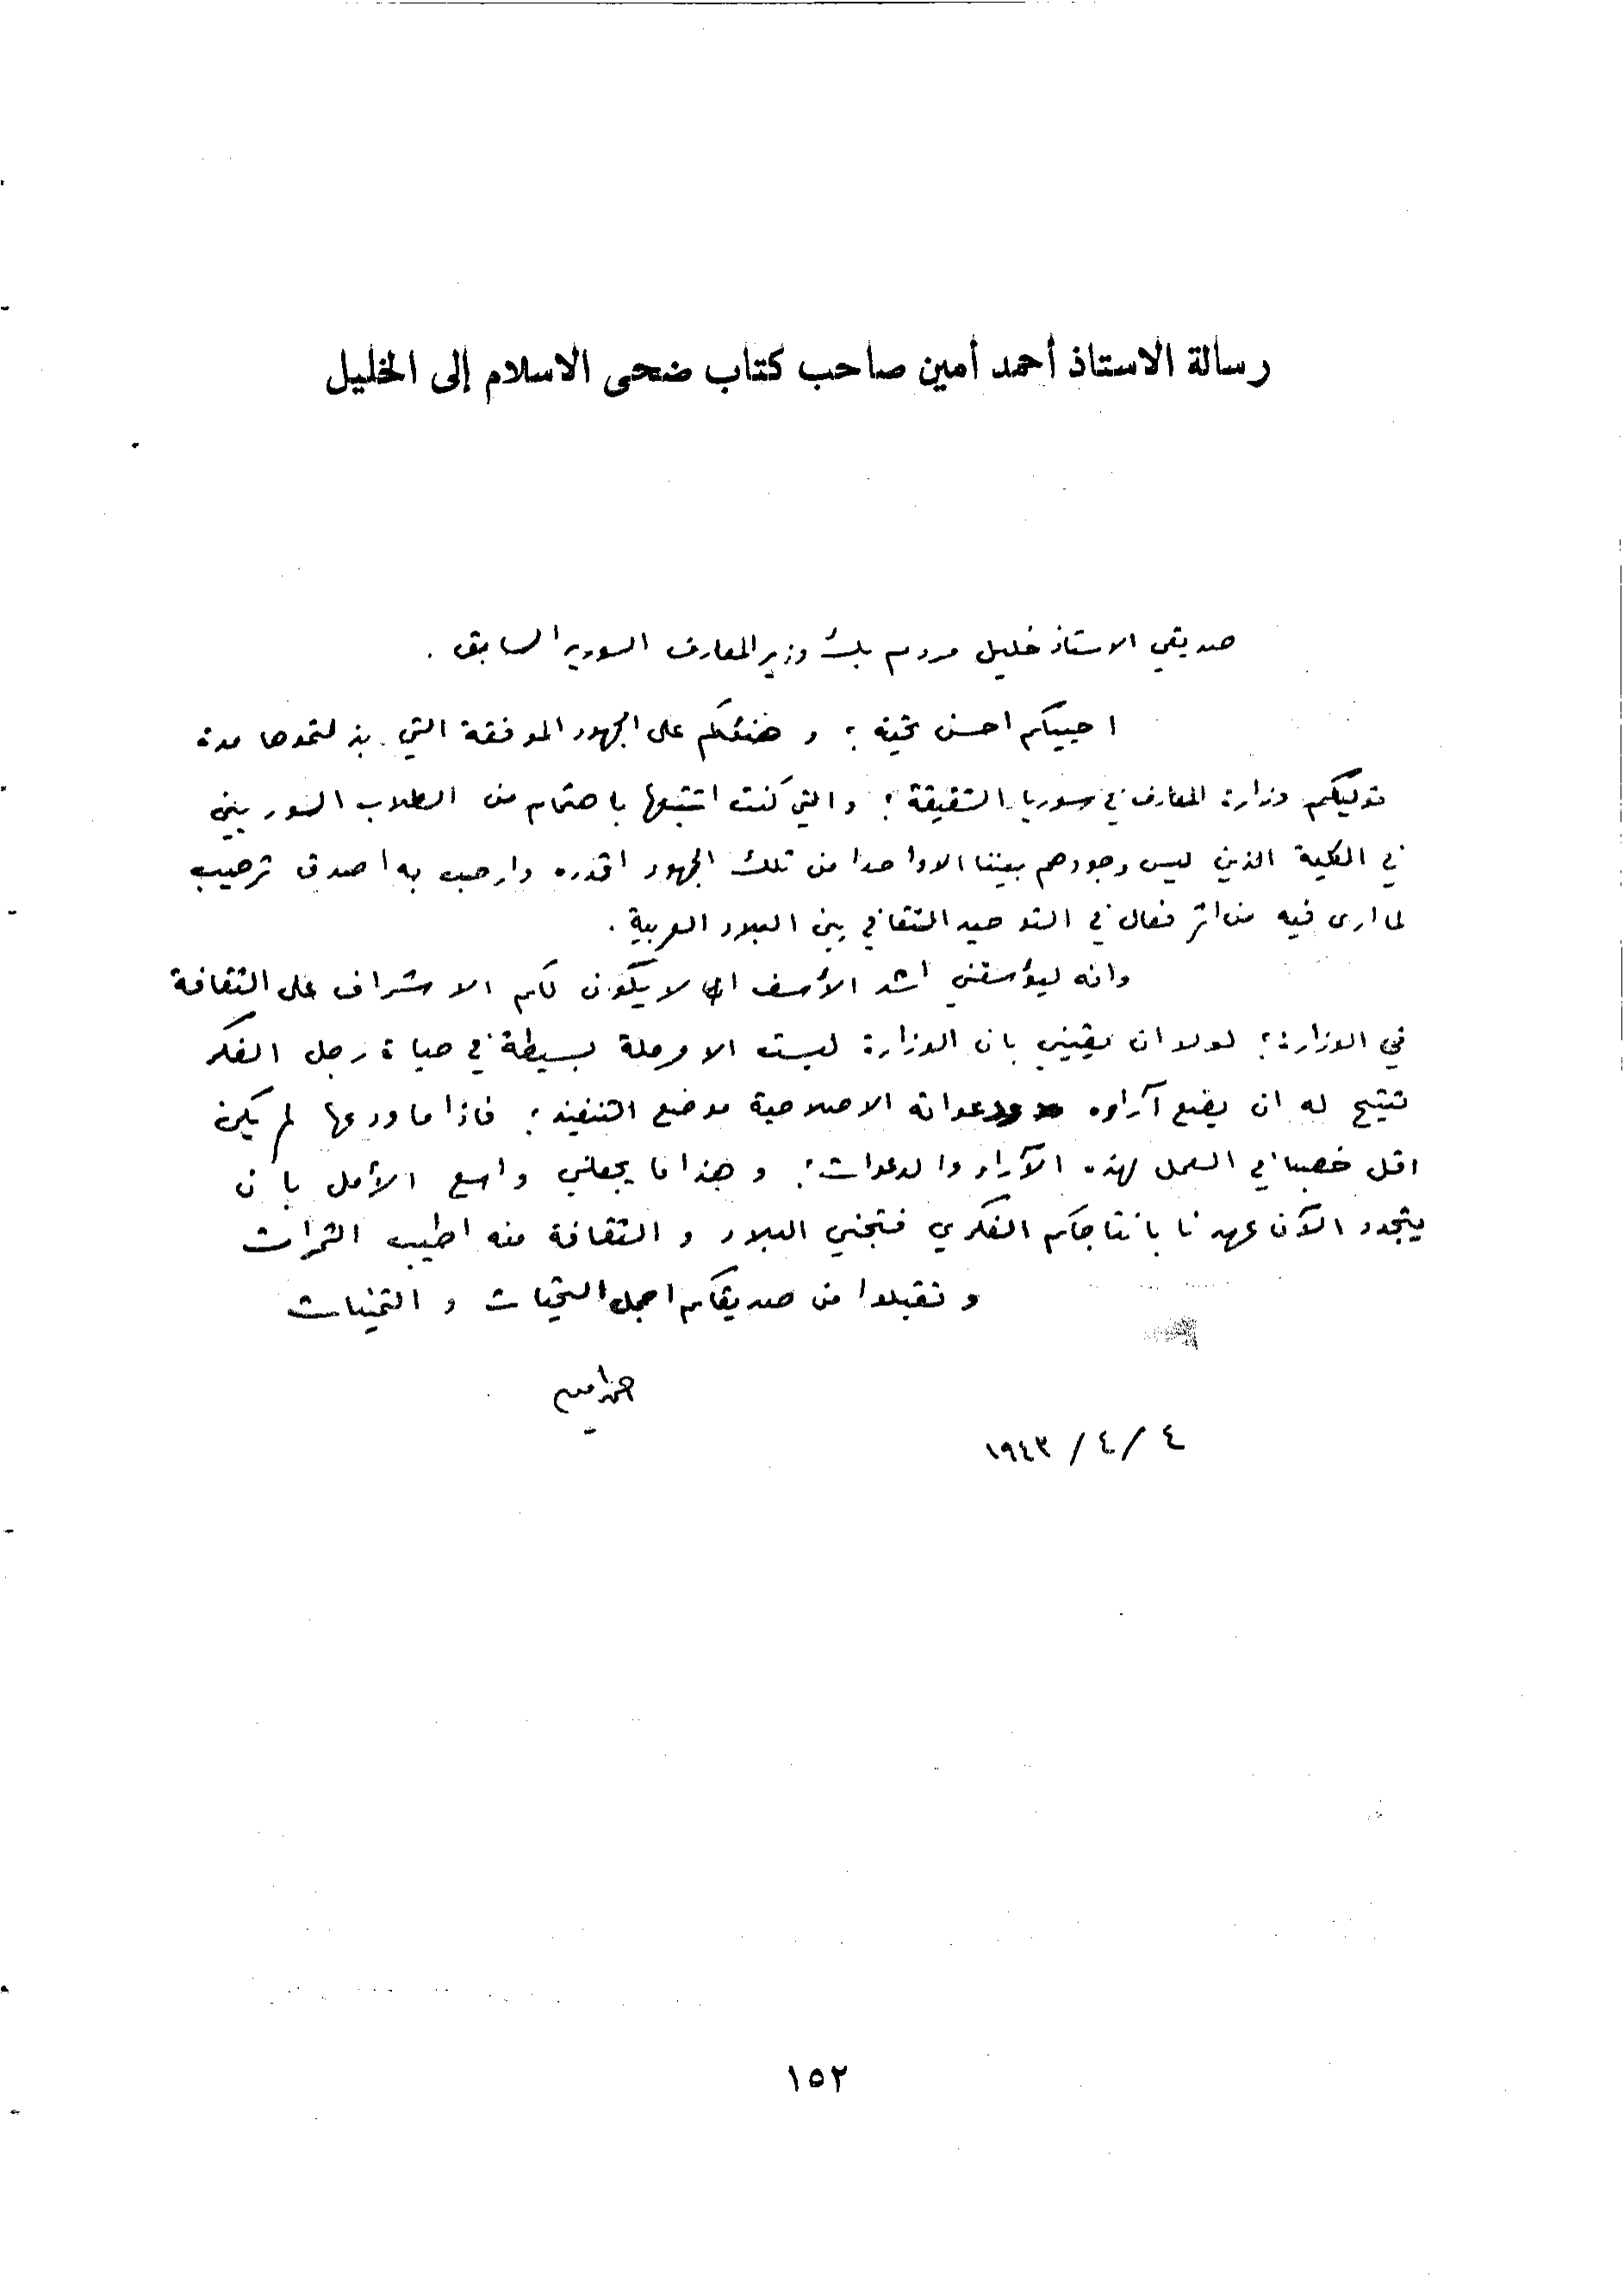 رسالة الاستاذ أحمد أمين صاحب كتاب ضحى الاسلام إلى الخليل
صديقي الاستاذ خليل مردم بك وزير المعارف السوريه السابق .
احييكم احسن تحية ؛ و اهنئكم على الجهود الموفقة التي بذلتموها مدة
توليكم وزارة المعارف في سوريا الشقيقة ؛ والتي كنت اتتبعها باهتمام من الطلاب السوريين
في الكلية الذين ليس وجودهم بيننا الا واحدا من تلك الجهود اقدره وارحب به اصدق ترحيب
لما ارى فيه من اثر فعال في التوحيد الثقافي بين البلاد العربية .
وانه ليؤسفني اشد الأسف ان لا يكون لكم الاشراف على الثقافة
في الوزارة ؛ لولا ان يقيني بان الوزارة ليست الا مرحلة بسيطة في حياة رجل الفكر
تتيح له ان يضع آراءه ودعواته الاصلاحية موضع التنفيذ ؛ فاذا ما ودعها لم يكن
اقل خصبا في العمل لهذه الآراء والدعوات ؛ وهذا ما يجعلني واسع الأمل بان
يتجدد الآن عهدنا بانتاجكم الفكري فتجني البلاد و الثقافة منه اطيب الثمرات
وتقبلوا من صديقكم اجمل التحيات و التمنيات
احمد امين
٤ / ٤ / ١٩٤٣
١٥٢